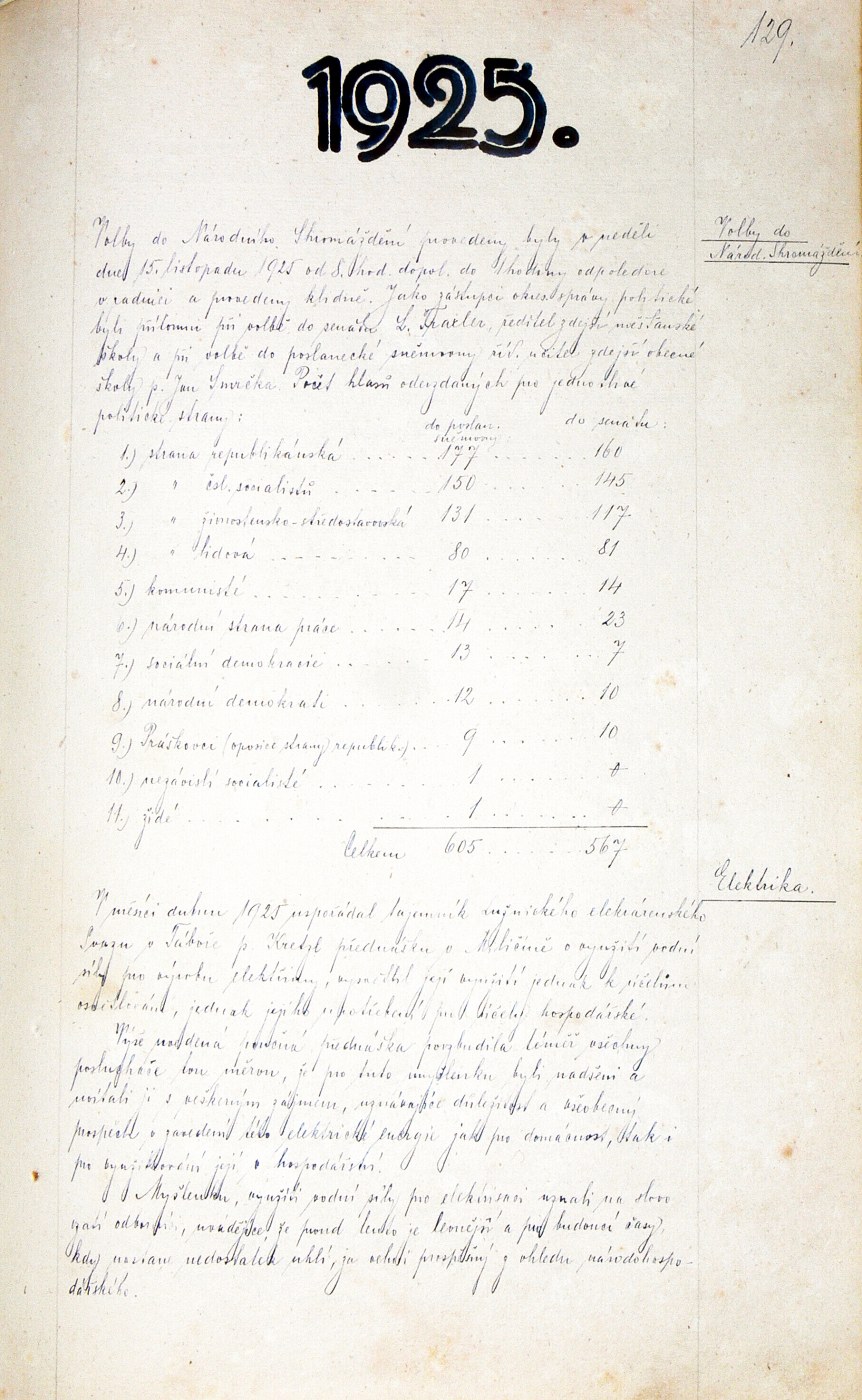 129.
1925.
Volby do
Národ. Shromáždění
Volby do Národního Shromáždění provedeny byly v neděli
dne 15. listopadu 1925 od 8. hod. dopol. do 4 hodiny odpoledne
v radnici a provedeny klidně. Jako zástupci okres. správy politické
byli přítomni při volbě do senátu L. Traxler, ředitel zdejší měšťanské
školy a při volbě do poslanecké sněmovny říd. učitel zdejší obecné
školy p. Jan Smrčka. Počet hlasů odevzdaných pro jednotlivé
politické strany:
do poslan. sněmovny do senátu:
1.) strana republikánská 177 160
2.) " čsl. socialistů 150 145
3.) " živnostensko-středostavovská 131 117
4.) " lidová 80 81
5.) komunisté 17 14
6.) národní strana práce 14 23
7.) sociální demokracie 13 7
8.) národní demokrati 12 10
9.) Práškovci (oposice strany republik.) 9 10
10.) nezávislí socialisté 1 0
11.) židé 1 0
Celkem 605 567
Elektrika.
V měsíci dubnu 1925 uspořádal tajemník Lužnického elektrárenského
Svazu v Táboře p. Kretzl přednášku v Miličíně o využití vodní
síly pro výrobu elektřiny, vysvětlil její využití jednak k účelům
osvětlování, jednak jejího upotřebení pro účele hospodářské.
Výše uvedená poučná přednáška povzbudila téměř všechny
posluchače tou měrou, že pro tuto myšlenku byli nadšeni a
uvítali ji s veškerým zájmem, uznávajíce důležitost a všeobecný
prospěch o zavedení této elektrické energie jak pro domácnost, tak i
pro využitkování její v hospodářství.
Myšlenku, využíti vodní síly pro elektrisaci uznali na slovo
vzatí odborníci, uvádějíce že proud tento je levnější a pro budoucí časy,
kdy nastane nedostatek uhlí, je velmi prospěšný z ohledu národohospo-
dářského.